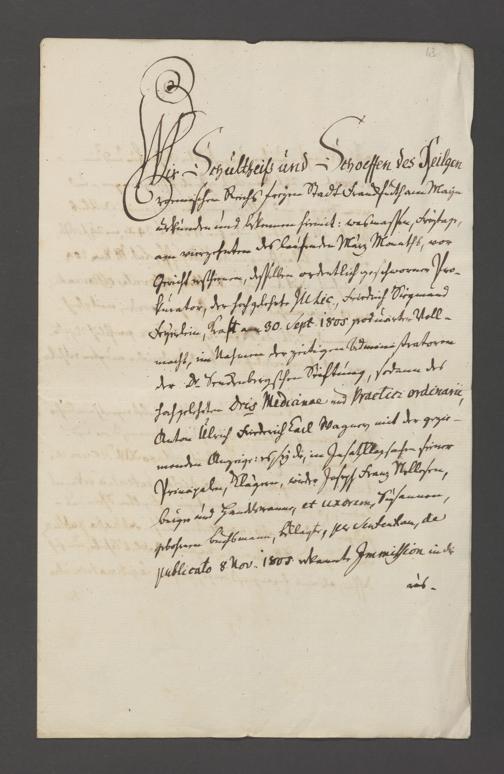 Wir Schultheiß und Schoeffen des Heilgen
roemischen Reichs freyen Stadt Frankfurth am Mayn
urkunden und bekennen hiemit: wasmassen, Freytags,
am vierzehnten des laufenden März Monaths, vor
Gericht erschienen, desselben ordentlich geschworner Pro-
kurator, der hochgelehrte JULic., Friedrich Sigmund
Feyerlein, Kraft am 30. Sept. 1805 producirter Voll-
macht, im Nahmen der zeitigen Administratoren
der Dr. Senckenbergschen Stiftung, sodann des
hochgelehrten Dris Medicinae und Practici ordinarii,
Anton Ulrich Friedrich Carl Wagner mit der gezie-
menden Anzeige: es seye die, in Sachen
Principalen, Klägern, wider Joseph Franz
burger und Handelsmann, et uxorem, Susannen,
gebohrne Buchsmann, Beklagte, per Sententiam, de
publicato 8 Nov. 1805 erkannte Immission in die
aus-